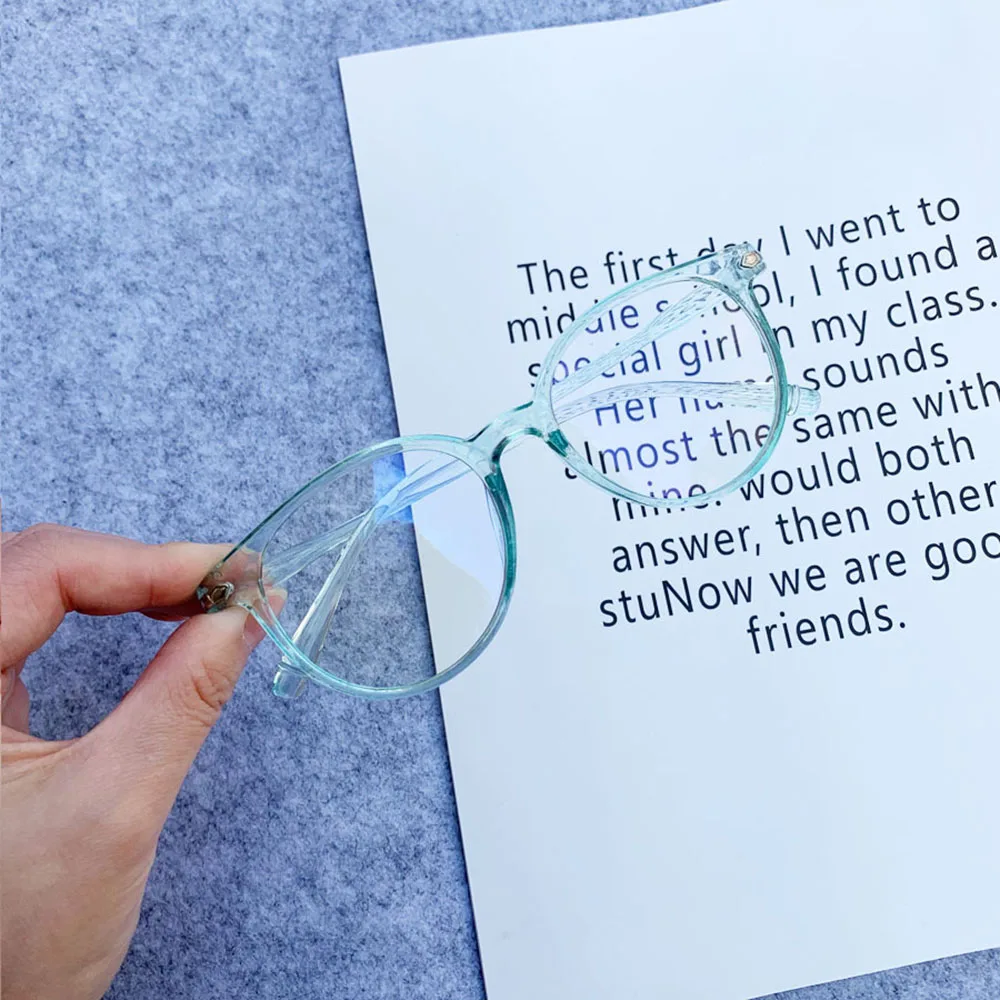 The first day I went to
middle school, I found a
special girl in my class.
Her name sounds
almost the same with
mine. would both
answer, then other
stuNow we are goo
friends.